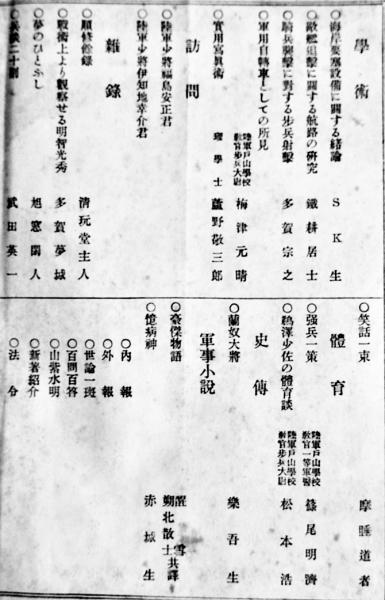 學術
○海岸要塞設備に關する緒論 SK生
○敵艦追擊に關する航路の研究 鐵耕居士
○騎兵襲擊に對する步兵射擊 多賀宗之
○軍用自轉車としての所見 陸軍戸山學校敎官步兵大尉 梅津元晴
○實用寫眞術 理學士 蘆野敬三郎
訪問
○陸軍少將福島安正君
○陸軍少將伊知地幸介君
雜錄
○順修餘錄 清玩堂主人
○戰術上より觀察せる明智光秀 多賀夢城
○夢のひとふし 旭窓閑人
武田英一
○笑話一束 摩睡道者
體育
○强兵一策 陸軍戸山學校敎官一等軍醫 篠尾明濟
○鵜澤少佐の體育談 陸軍戸山學校敎官步兵大尉 松本浩
史傳
○蘭奴大將 樂吾生
軍事小說
○豪傑物語 醒雪 朔北散士 共譯
○憶病神 赤城生
○內報
○外報
○世論一斑
○百問百答
○山紫水明
○新著紹介
○法令